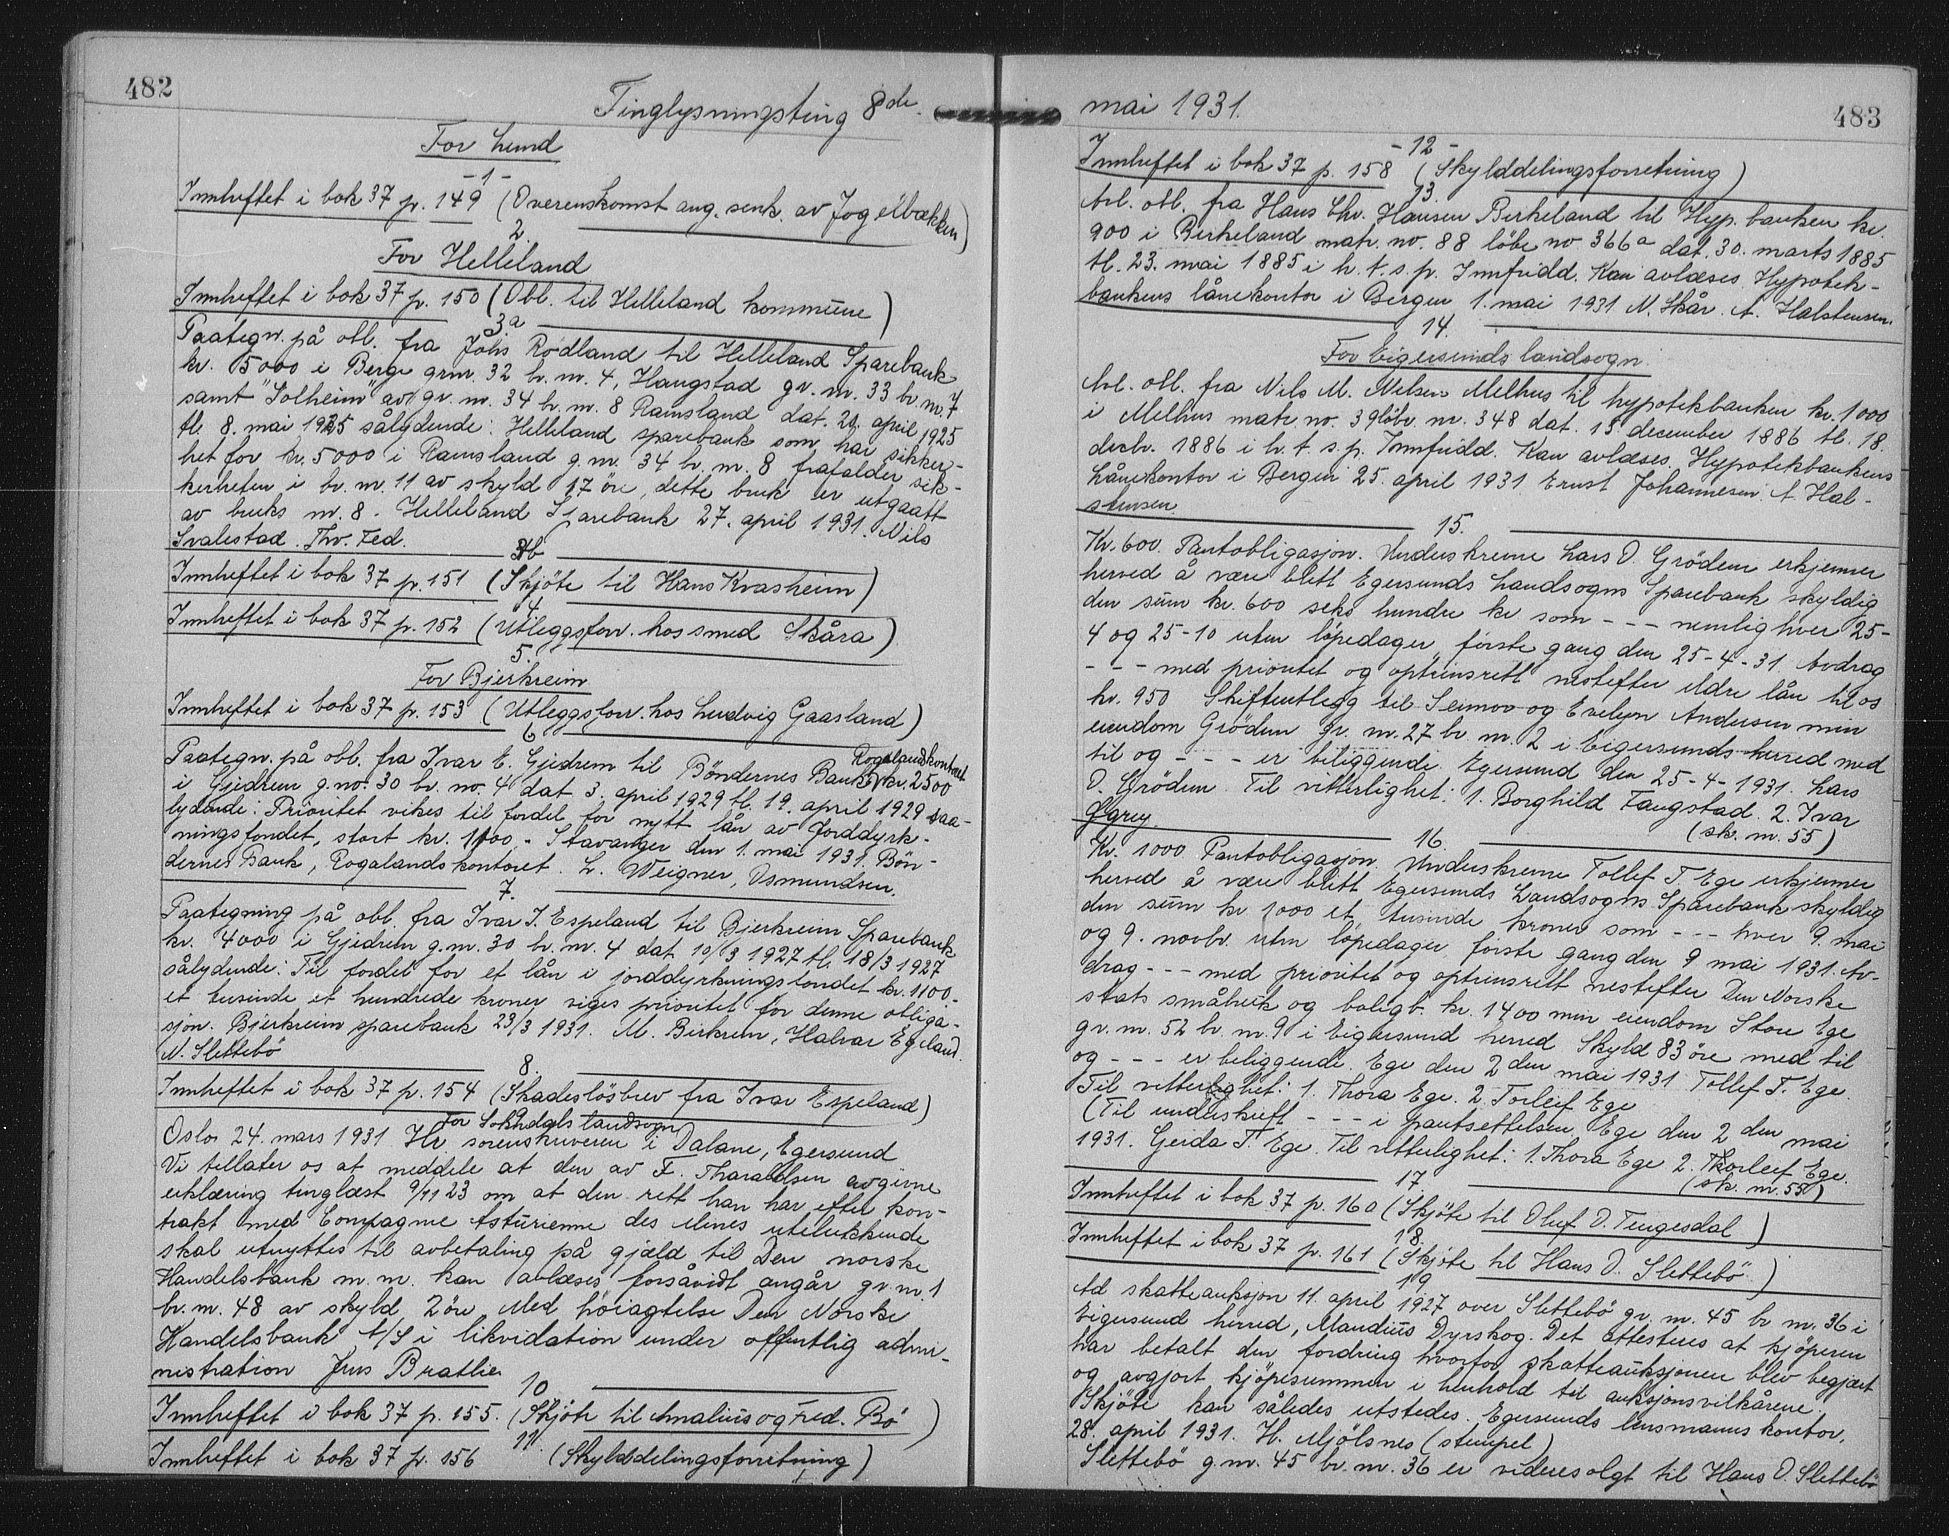 482
Tinglysningsting 8de
For Lund
-1-
Innheftet i bok 37 p. 149 (Overenskomst ang. senk. av Jogelbækken)
2.
For Helleland
Innheftet i bok 37 p. 150 (Obl. til Helleland kommune)
3a
Paategn. på obl. fra Johs Rodland til Helleland Sparebank
kr. 5000 i Berge grn. 32 br. nr. 4, Haugstad gr. nr. 33 br. nr. 7
samt "Solheim" av gr. nr. 34 br. nr. 8 Ramsland dat. 20. april 1925
tl. 8. mai 1925 sålydende: Helleland sparebank som har sikker-
het for kr. 5000 i Ramsland g.nr. 34 br. nr. 8 frafalder sik-
kerheten i br. nr. 11 av skyld 17 öre, dette bruk er utgaatt
av bruks nr. 8. Helleland Sparebank 27. april 1931. Nils
Svalestad. Thv. Fed.
3b
Innheftet i bok 37 p. 151 (Skjöte til Hans Kvasheim)
4
Innheftet i bok 37 p. 152 (Utleggsforr. hos smed Skåra)
5.
For Bjerkreim
Innheftet i bok 37 p. 153 (Utleggsforr. hos Ludvig Gaasland)
6
Rogalandkontoret
Paategn. på obl. fra Ivar E. Gjedrem til Böndernes Bank, kr. 2500
i Gjedrem g.no. 30 br. no. 4 dat 3. april 1929 tl. 19. april 1929 saa-
lydende: Prioritet vikes til fordel for nytt lån av Jorddyrk-
ningsfondet, stort kr. 1100,- Stavanger den 1. mai 1931. Bön-
dernes Bank, Rogalandskontoret. L. Weigner, Osmundsen.
7.
Paategning på obl. fra Ivar I. Espeland til Bjerkreim Sparebank
kr. 4000 i Gjedrem g.nr. 30 br. nr. 4 dat 10/3 1927 tl. 18/3 1927
sålydende: Til fordel for et lån i jorddyrkningsfondet kr. 1100-
et tusinde et hundrede kroner viges prioritet for denne obliga-
sjon. Bjerkreim sparebank 23/3 1931. M. Birkrem, Halvar Egeland.
N. Slettebö
8.
Innheftet i bok 37 p. 154 (Skadeslösbrev fra Ivar Espeland)
9
For Sokndals landsogn
Oslo, 24. mars 1931 Hr. sorenskriveren i Dalane, Egersund
Vi tillater os at meddele at den av F. Tharaldsen avgivne
erklæring tinglæst 9/11 23 om at den rett han har efter kon-
trakt med Compagnie Asturienne des Mines utelukkende
skal utnyttes til avbetaling på gjæld til Den norske
Handelsbank m.m. kan avlæses forsåvidt angår gr. nr. 1
br. nr. 48 av skyld 2 öre. Med höiagtelse Den Norske
Handelsbank A/S i likvidation under offentlig admi-
nistration Jens Bratlie
10
Innheftet i bok 37 p. 155. (Skjöte til Amalius og Fred. Bö)
11.
Innheftet i bok 37 p. 156 (Skylddelingsforretning)
mai 1931.
483
-12-
Innheftet i bok 37 p. 158 (Skylddelingsforretning)
13.
Avl. obl. fra Hans Chr. Hansen Birkeland til Hyp. banken kr.
900 i Birkeland matr. no. 88 löbe no 366a dat. 30. marts 1885
tl. 23. mai 1885 i h. t. s. p. Innfridd. Kan avlæses. Hypotek-
bankens lånekontor i Bergen 1. mai 1931 N. Skår. A. Halstensen.
14.
For Eigersunds landsogn.
Avl. obl. fra Nils M. Nilsen Melhus til hypotekbanken kr. 1000
i Melhus matr. no. 39 löbr. nr. 348 dat. 15 december 1886 tl. 18.
decbr. 1886 i h. t. s. p. Innfridd. Kan avlæses. Hypotekbankens
Lånekontor i Bergen 25. april 1931 Ernst Johannesen. A Hal-
stensen.
15.
Kr. 600. Pantobligasjon. Underskrevne Lars O. Grödem erkjenner
herved å være blitt Egersunds Landsogns Sparebank skyldig
den sum kr. 600 seks hundre kr som - - - nemlig hver 25-
4 og 25-10 uten löpedager, förste gang den 25-4-31 Avdrag
- - - med prioritet og optrinsrett nestefter eldre lån til os
kr. 950 Skifteutlegg til Seimoo og Evelyn Andersen min
eiendom Grödem gr. nr. 27 br. nr. 2 i Eigersunds herred med
til og - - - er beliggende. Egersund den 25-4-1931. Lars
O. Grödem. Til vitterlighet: 1. Borghild Taugstad. 2. Ivar
Gary.
(sk. m. 55)
16.
Kr. 1000 Pantobligasjon. Underskrevne Tollef T Ege erkjenner
herved å være blitt Egersunds Landsogns Sparebank skyldig
den sum kr 1000 et tusinde kroner som - - - hver 9. mai
og 9. novbr. uten löpedager, förste gang den 9 mai 1931. Av-
drag - - - med prioritet og optrinsrett nestefter Den Norske
stats småbruk og boligb. kr. 1400 min eiendom Store Ege
gr. nr. 52 br. nr. 9 i Eigersund herred Skyld 83 öre med til
og - - - er beliggende. Ege den 2 den mai 1931 Tollef T. Ege.
Til vitterlighet: 1. Thora Ege. 2. Torleif Ege
(Til underskrift - - - i pantsettelsen, Ege den 2 den mai
1931. Gerda T Ege. Til vitterlighet: 1. Thora Ege 2. Thorleif Ege.
(sk. m. 55)
17
Innheftet i bok 37 p. 160 (Skjöte til Oluf O. Tengesdal)
18.
Innheftet i bok 37 p. 161 (Skjöte til Hans O. Slettebö.)
19
Ad skatteauksjon 11. april 1927 over Slettebö gr. nr. 45 br nr. 36 i
Eigersund herred, Maudius Dyrskog. Det attesteres at kjöperen
har betalt den fordring hvorfor skatteauksjonen blev begjært
og avgjort kjöpesummen i henhold til auksjonsvilkårene.
Skjöte kan således utstedes. Egersunds lensmannskontor,
28. april 1931. H. Mjölsnes (stempel)
Slettebö g.nr. 45 br. nr. 36 er videresolgt til Hans O. Slettebö